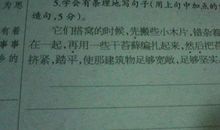 为思
5.学会有条理地写句子(用上句中加点的
造句,5分)。
它们搭窝的时候,先搬些小木片,错杂着
在一起,再用一些干苔藓编扎起来,然后把苔
挤紧,踏平,使那建筑物足够宽敞,足够坚实
有着
事事
乡的